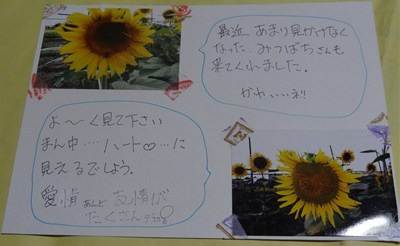 最近 あまり見かけなく
なった みつばちさんも
来てくれました.
かわいいネ!!
よ〜く見て下さい
まん中…ハート♡…に
見えるでしょう.
愛情 あんど 友情が
たくさん